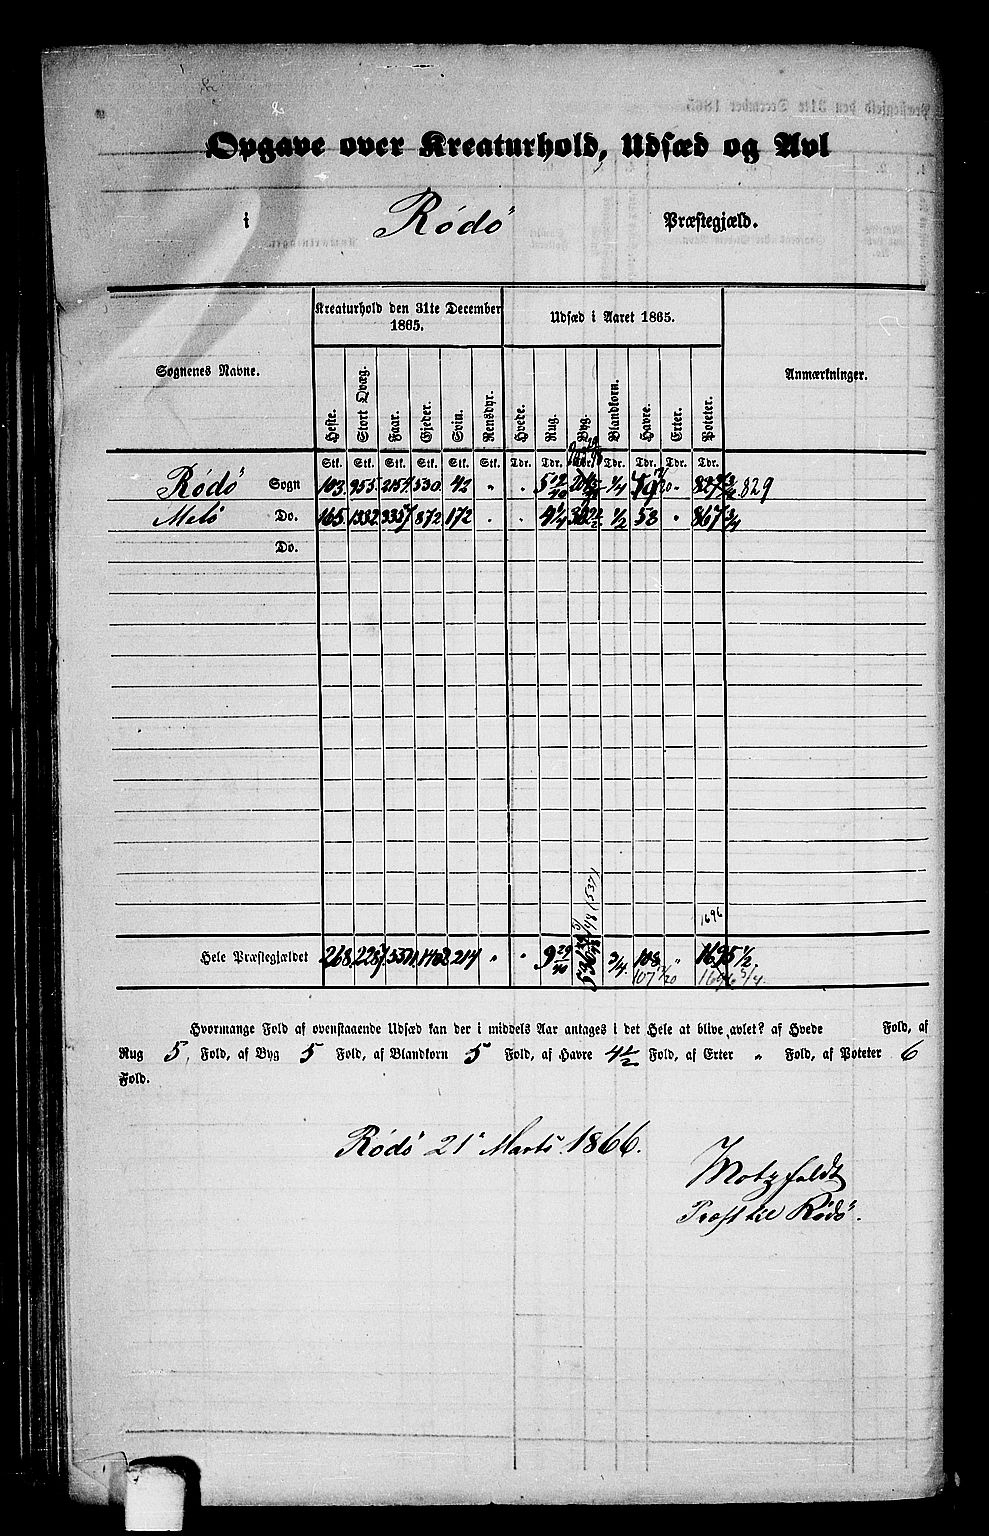 Opgave over Kreaturhold, Udsæd og Avl
i Rödö Præstegjæld.
Sognenes Navne.
Kreaturhold den 31te December
1865.
Udsæd i Aaret 1865.
Anmærkninger.
Heste. Stort Qvæg. Faar. Gjeder. Svin. Rensdyr. Hvede. Rug. Byg. Blandkorn. Havre. Erter. Poteter.
Stk. Stk. Stk. Stk. Stk. Stk. Tdr. Tdr. Tdr. Tdr. Tdr. Tdr. Tdr.
Rödö Sogn 103. 955. 2154. 530 42 " " 5 12/40 1/4 " 829
Melö Do. 165. 1332. 3357 872 172 " " 4 1/4 1/2 58 " 867 3/4
Do.
1696
Hele Præstegjældet 268. 2287. 1402 214 " " 9 29/40 3/4 108 " 1695 1/2
107 1696 3/4
Hvormange Fold af ovenstaaende Udsæd kan der i middels Aar antages i det Hele at blive avlet? af Hvede Fold, af
Rug 5, Fold, af Byg 5 Fold, af Blandkorn 5 Fold, af Havre 4 1/2 Fold, af Erter " Fold, af Poteter 6
Fold.
Rödö 21 Marts 1866.
Motzfeldt
Præst til Rödö.